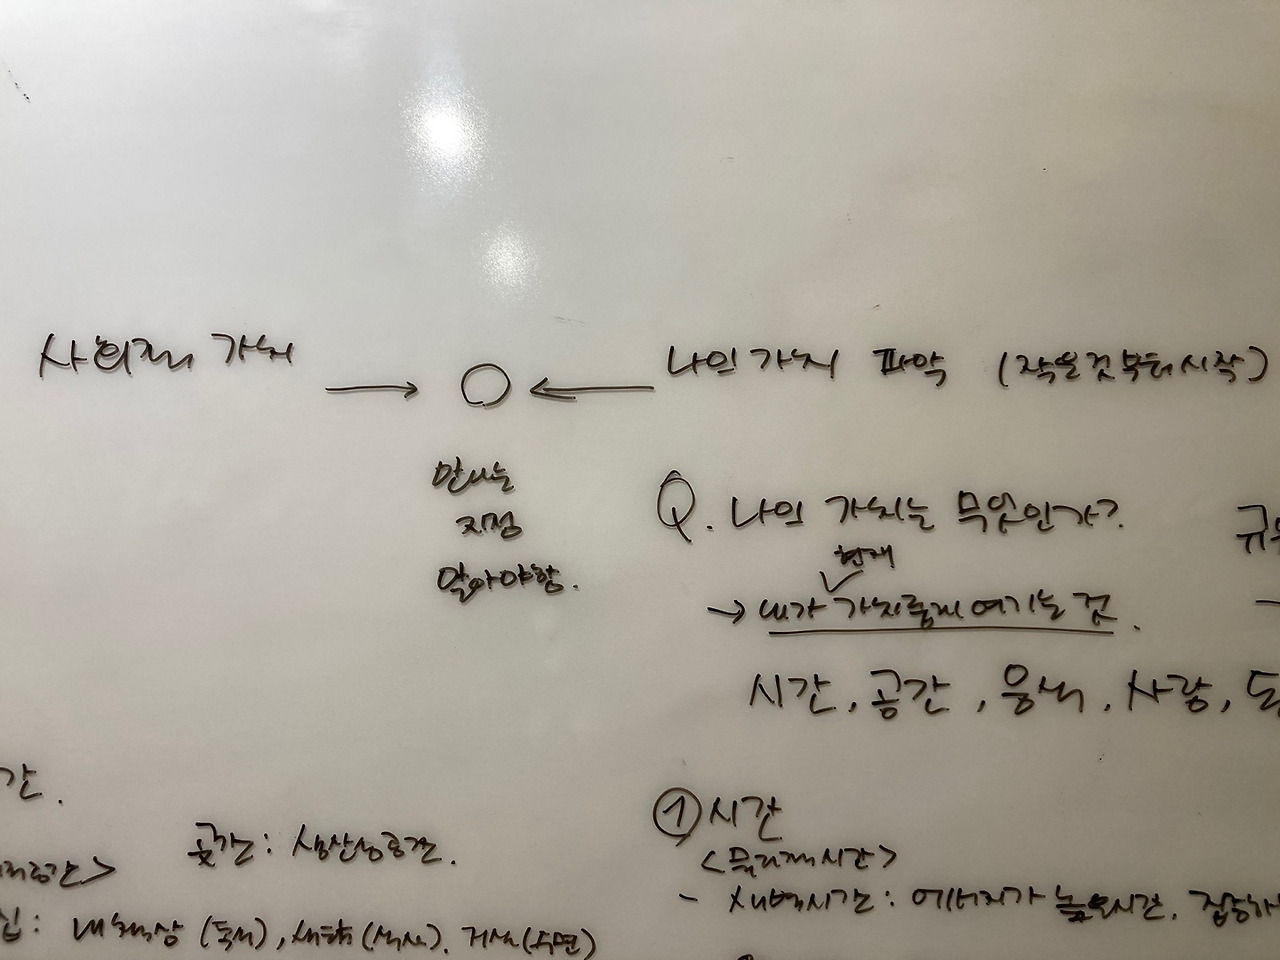 사회적 가치 → ○ ← 나의 가치 파악 (작은것부터시작)
만나는
지점
알아야함.
Q. 나의 가치는 무엇인가?
현재
→ 내가 가치롭게 여기는 것.
시간, 공간, 음식, 사랑,
간.
공간: 생산성공간.
① 시간
<물리적시간>
- 새벽시간: 에너지가 높은시간,
집: 내책상 (독서), 식탁(식사), 거실(수면)